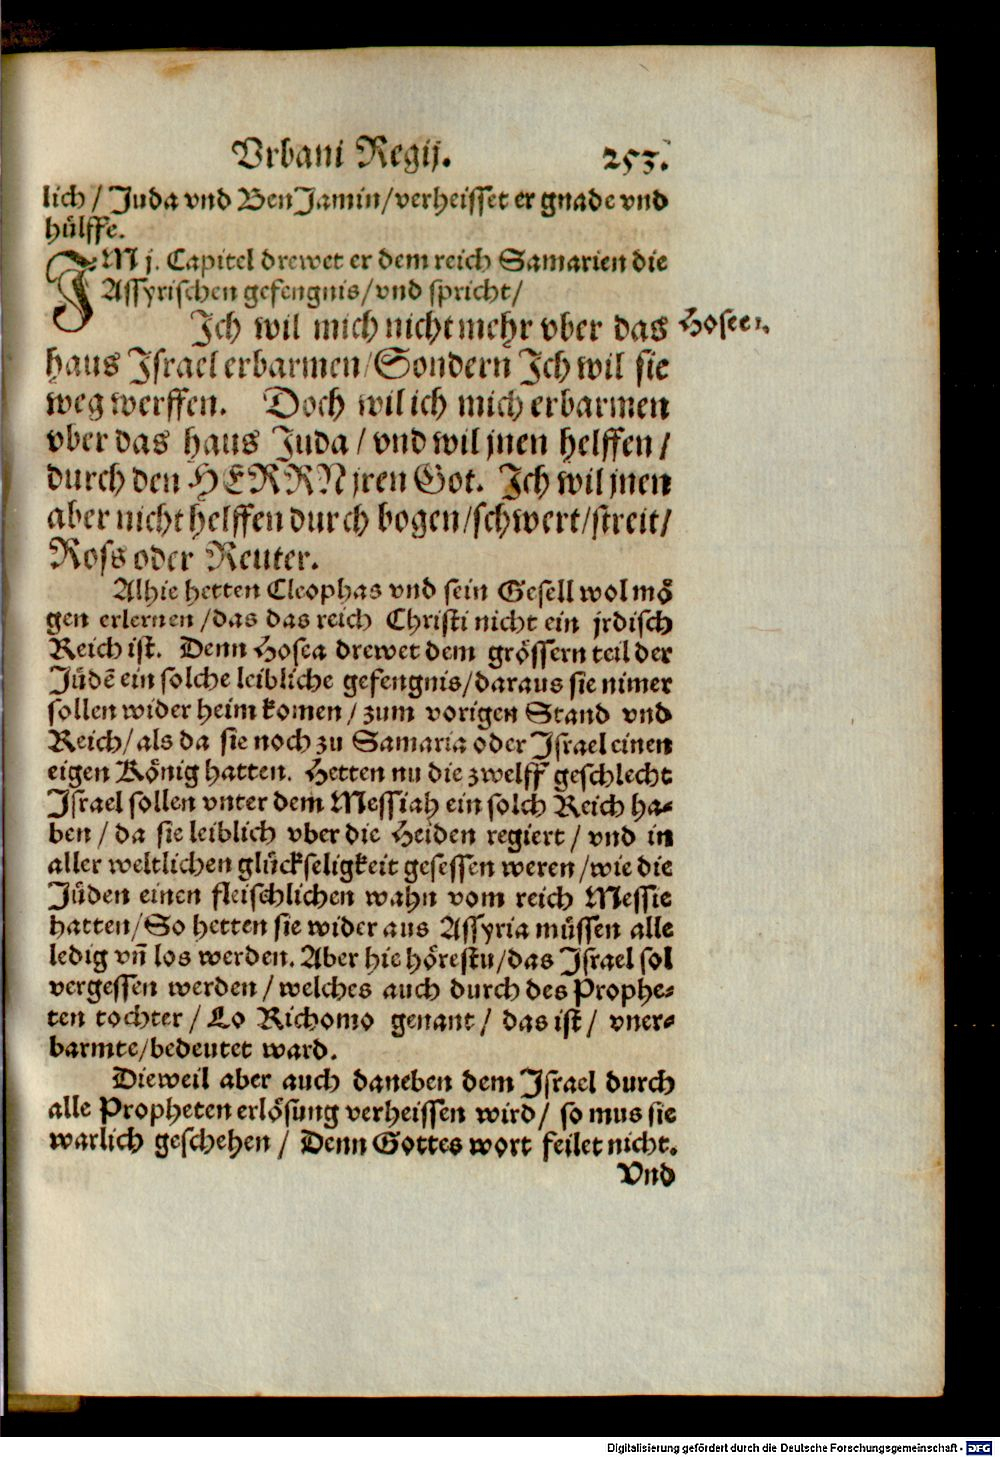 Vrbani Regij. 253.
lich / Juda vnd BenJamin / verheisset er gnade vnd
hülffe.
IM j. Capitel drewet er dem reich Samarien die
Assyrischen gefengnis / vnd spricht /
Ich wil mich nicht mehr vber das
Hosee 1.
haus Israel erbarmen / Sondern Ich wil sie
weg werffen. Doch wil ich mich erbarmen
vber das haus Juda / vnd wil jnen helffen /
durch den HERRN jren Got. Ich wil jnen
aber nicht helffen durch bogen / schwert / streit /
Ross oder Reuter.
Alhie hetten Cleophas vnd sein Gesell wol mö
gen erlernen / das das reich Christi nicht ein jrdisch
Reich ist. Denn Hosea drewet dem grössern teil der
Jüdē ein solche leibliche gefengnis / daraus sie nimer
sollen wider heim komen / zum vorigen Stand vnd
Reich / als da sie noch zu Samaria oder Israel einen
eigen König hatten. Hetten nu die zwelff geschlecht
Israel sollen vnter dem Messiah ein solch Reich ha-
ben / da sie leiblich vber die Heiden regiert / vnd in
aller weltlichen glückseligkeit gesessen weren / wie die
Jüden einen fleischlichen wahn vom reich Messie
hatten / So hetten sie wider aus Assyria müssen alle
ledig vn̄ los werden. Aber hie hörestu / das Israel sol
vergessen werden / welches auch durch des Prophe-
ten tochter / Lo Richomo genant / das ist / vner-
barmte / bedeutet ward.
Dieweil aber auch daneben dem Israel durch
alle Propheten erlösung verheissen wird / so mus sie
warlich geschehen / Denn Gottes wort feilet nicht.
Vnd
Digitalisierung gefördert durch die Deutsche Forschungsgemeinschaft - DFG